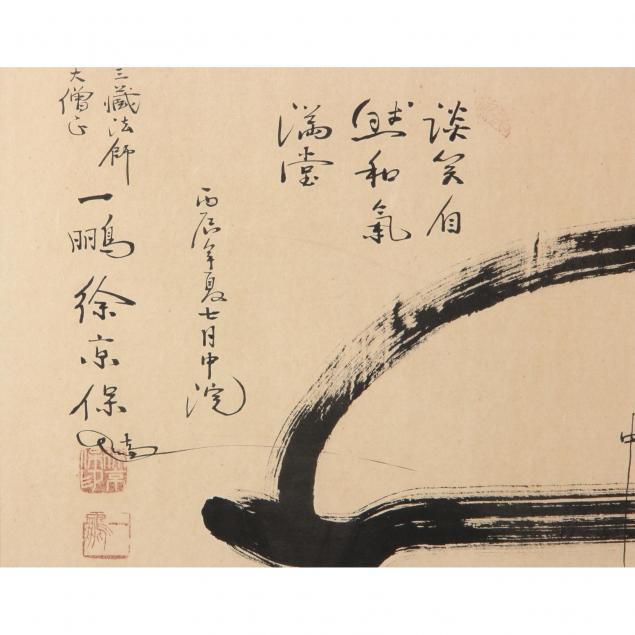 談笑自
然和氣
滿堂
丙辰年夏七月中浣
三藏法師
大僧正
一鵬
徐京保